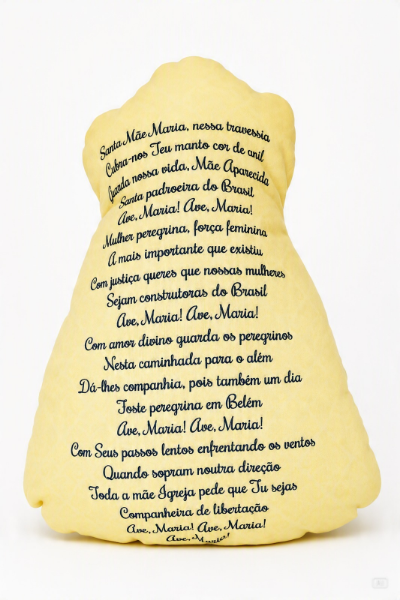 Santa Mãe Maria, nessa travessia
Cubra-nos Teu manto cor de anil
Guarda nossa vida, Mãe Aparecida
Santa padroeira do Brasil
Ave, Maria! Ave, Maria!
Mulher peregrina, força feminina
A mais importante que existiu
Com justiça queres que nossas mulheres
Sejam construtoras do Brasil
Ave, Maria! Ave, Maria!
Com amor divino guarda os peregrinos
Nesta caminhada para o além
Dá-lhes companhia, pois também um dia
Foste peregrina em Belém
Ave, Maria! Ave, Maria!
Com Seus passos lentos enfrentando os ventos
Quando sopram noutra direção
Toda a mãe Igreja pede que Tu sejas
Companheira de libertação
Ave, Maria! Ave, Maria!
Ave, Maria!